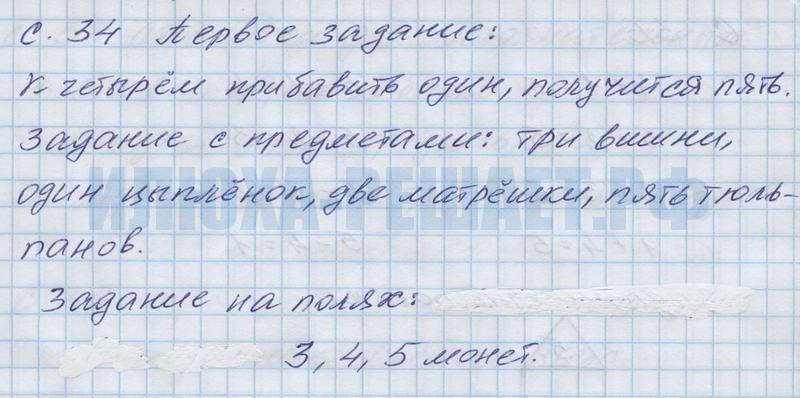 с. 34 Первое задание:
К четырём прибавить один, получится пять.
Задание с предметами: три вишни,
один цыплёнок, две матрёшки, пять тюль-
ИЛЮХА-РЕШАЕТ.РФ
панов.
Задание на полях:
3, 4, 5 монет.